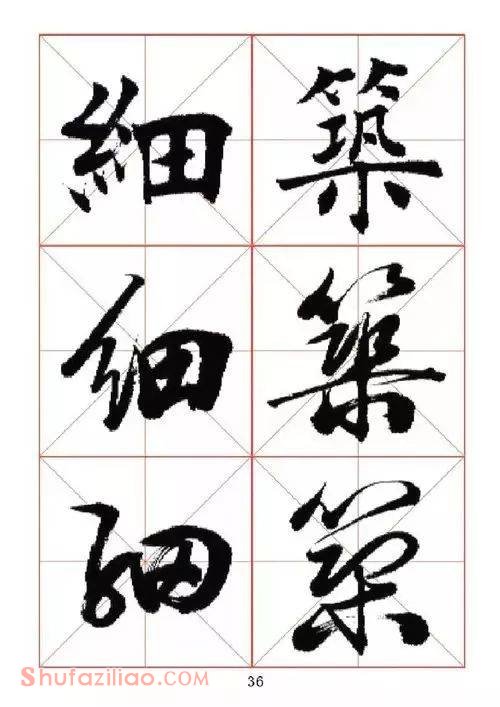 築 細
築 細
築 細
Shufaziliao.com
36